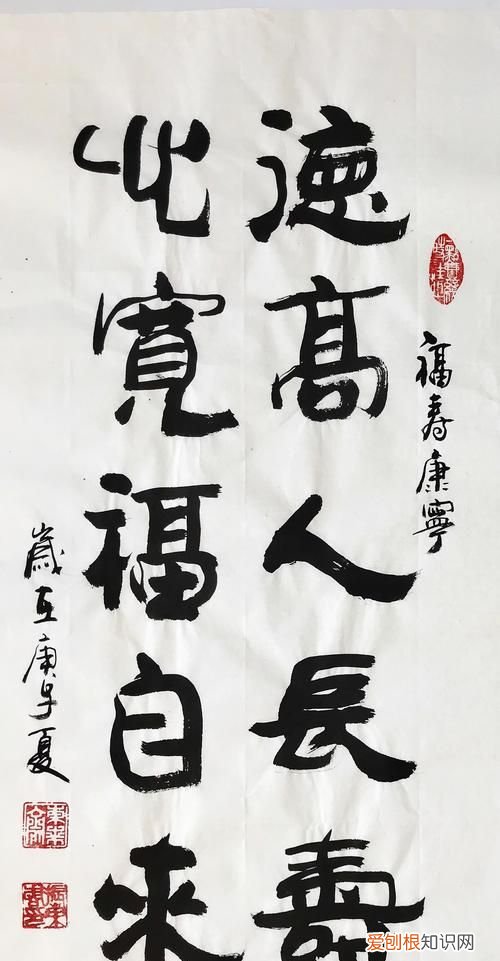 福寿康寧
德高人長壽
心寬福自來
歲在庚子夏
爱刨根知识网